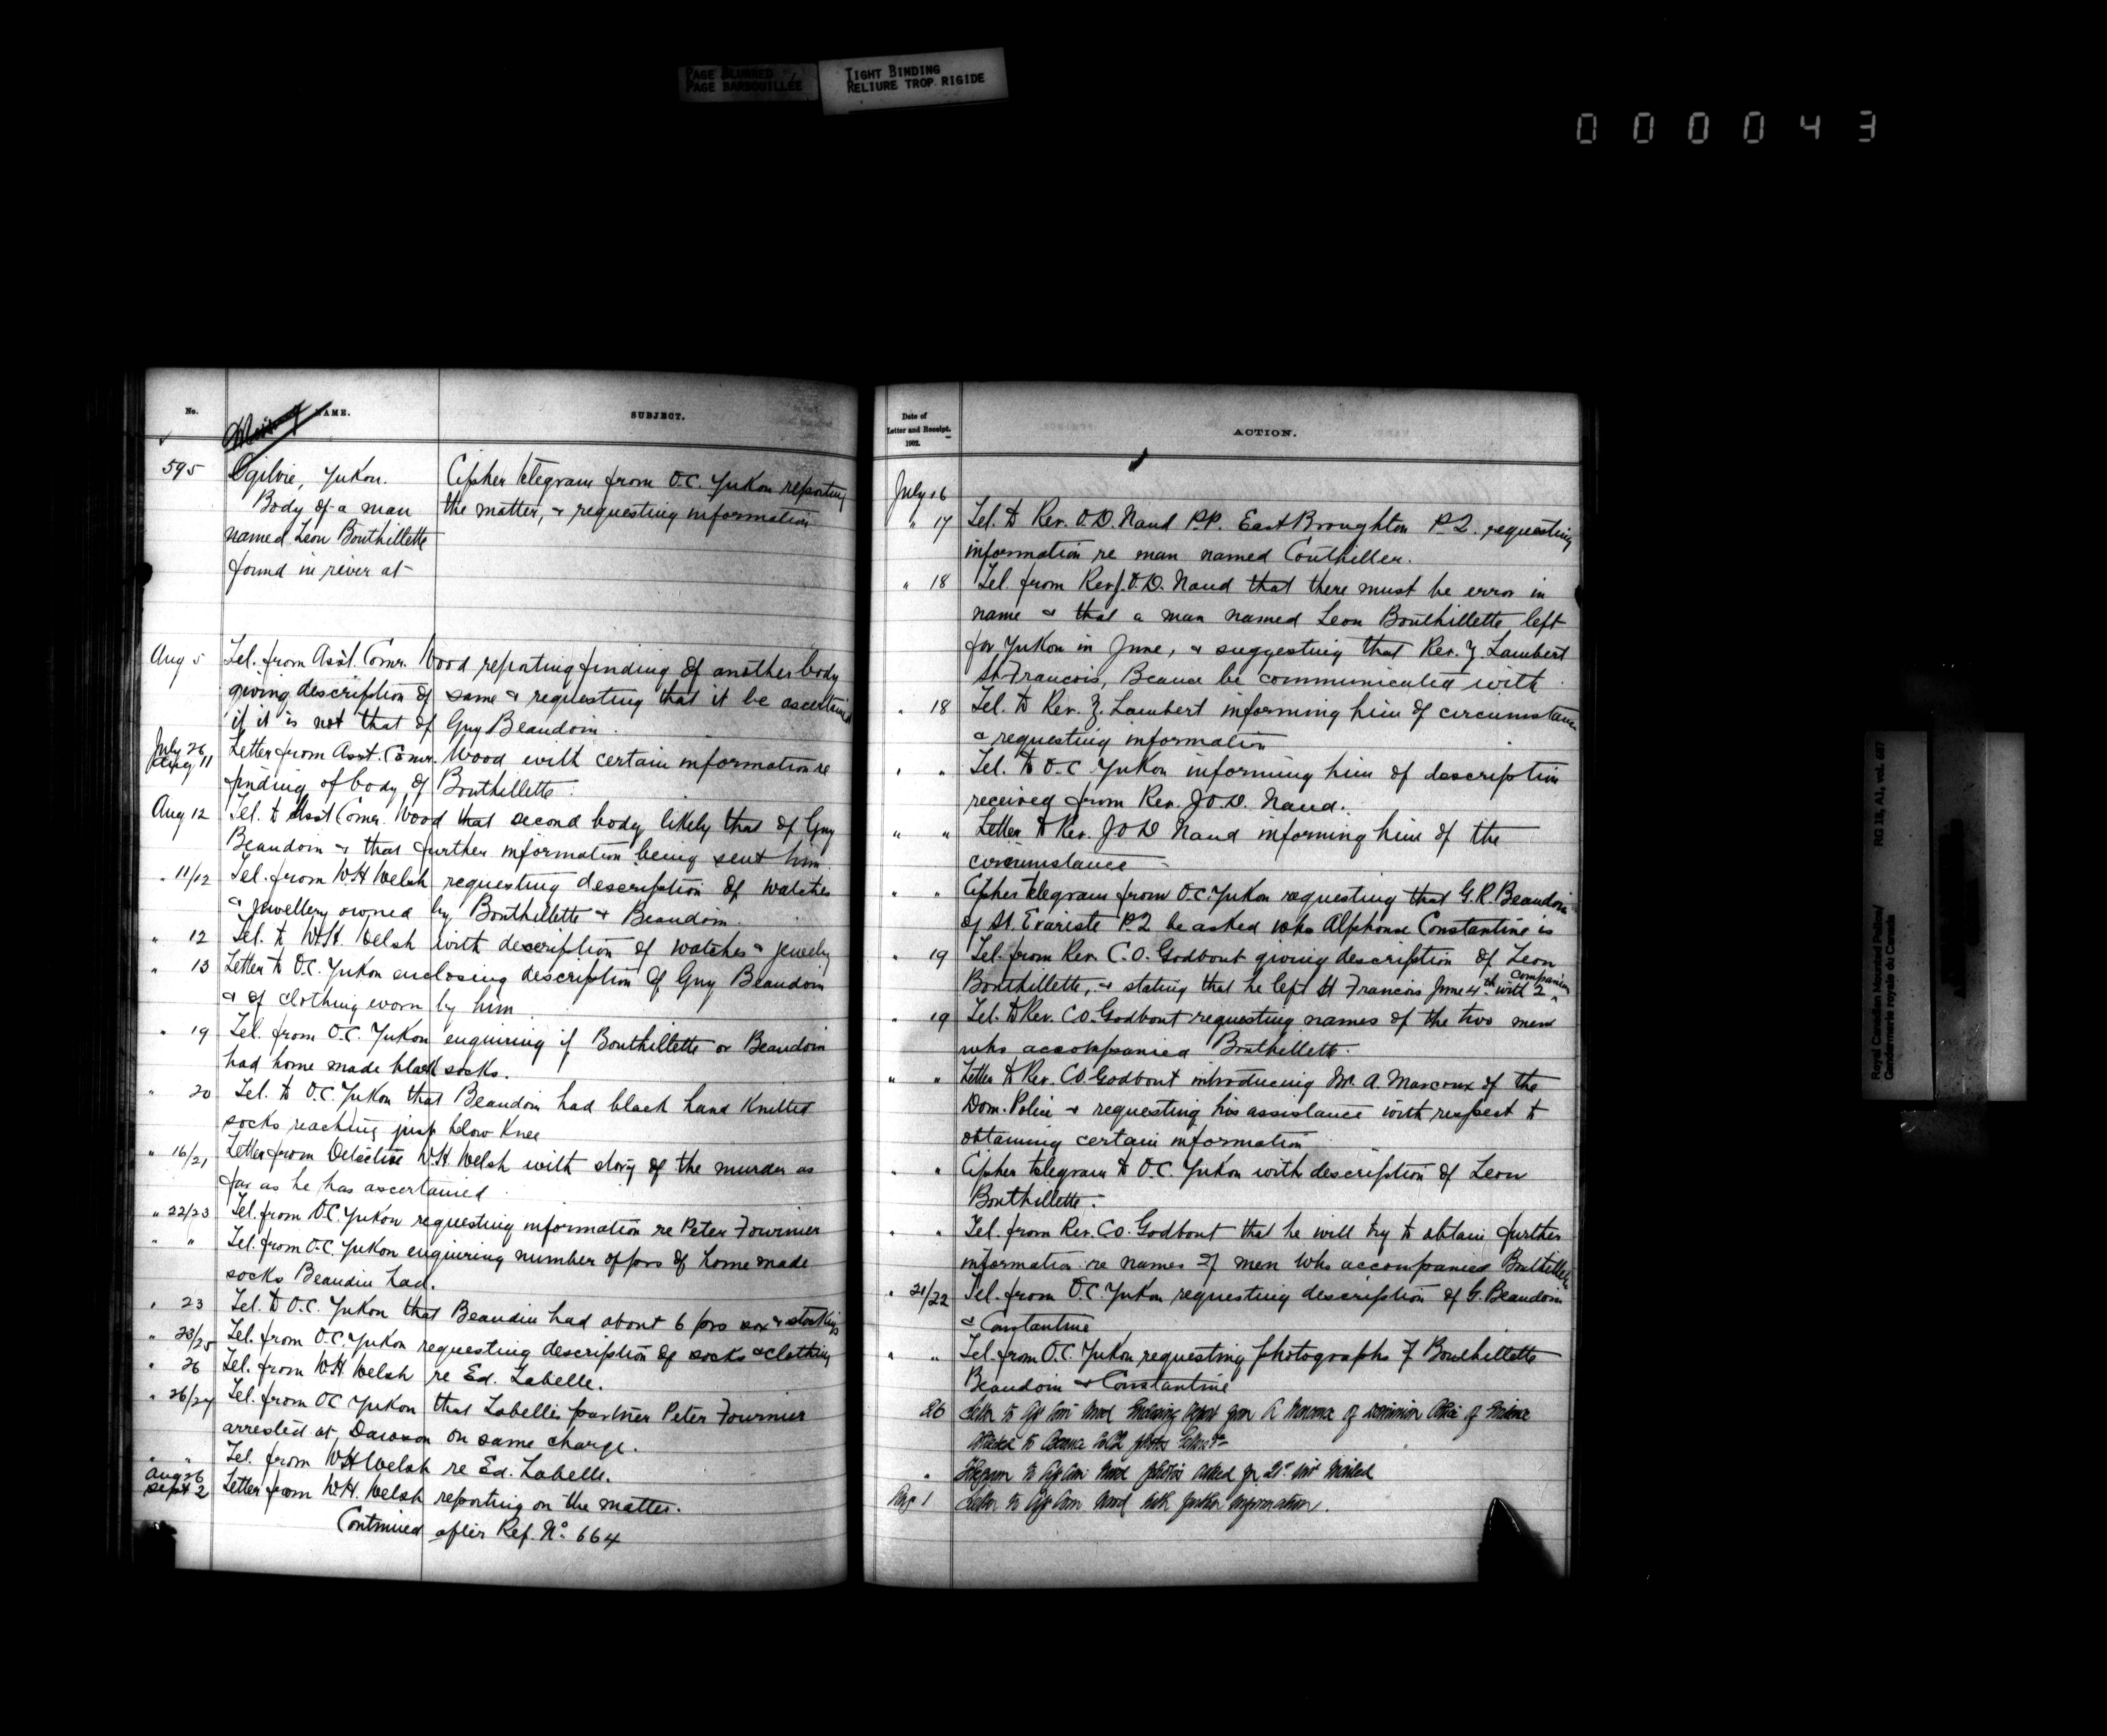 PAGE BLURRED
PAGE BARBOUILLÉE
TIGHT BINDING
RELIURE TROP RIGIDE
000043
No.
NAME.
SUBJECT.
595
Ogilvie, Yukon.
Body of a man
named Leon Bouthillette
found in river at
Cipher telegram from O.C. Yukon reporting
the matter, & requesting information
Aug 5 Tel. from Asst. Comr. Wood reporting finding of another body
giving description of same & requesting that it be ascertained
if it is not that of Guy Beaudoin.
July 26/Aug 11 Letter from Asst. Comr. Wood with certain information re
finding of body of Bouthillette.
Aug 12 Tel. to Asst Comr. Wood that second body likely that of Guy
Beaudoin & that further information being sent him
" 11/12 Tel. from W.H. Welsh requesting description of watches
& jewellery owned by Bouthillette & Beaudoin.
" 12 Tel. to W.H. Welsh with description of watches & jewelry
" 13 Letter to O.C. Yukon enclosing description of Guy Beaudoin
& of clothing worn by him.
" 19 Tel. from O.C. Yukon enquiring if Bouthillette or Beaudoin
had home made black socks.
" 20 Tel. to O.C. Yukon that Beaudoin had black hand knitted
socks reaching just below knee
" 16/21 Letter from Detective W.H. Welsh with story of the murder as
far as he has ascertained.
" 22/23 Tel. from O.C. Yukon requesting information re Peter Fournier
" " Tel. from O.C. Yukon enquiring number of prs of home made
socks Beaudin had.
" 23 Tel. to O.C. Yukon that Beaudin had about 6 prs sox & stockings
" 23/25 Tel. from O.C. Yukon requesting description of socks & clothing
" 26 Tel. from W.H. Welsh re Ed. Labelle.
" 26/27 Tel. from OC Yukon that Labelle's partner Peter Fournier
arrested at Dawson on same charge.
" " Tel. from WH Welsh re Ed. Labelle.
Aug 26/Sept 2 Letter from W.H. Welsh reporting on the matter.
Continued after Ref. No. 664
Date of
Letter and Receipt.
1902.
ACTION.
July 16
" 17 Tel. to Rev. O.D. Naud P.P. East Broughton P.Q. requesting
information re man named Couthiller.
" 18 Tel. from Rev J.O.D. Naud that there must be error in
name & that a man named Leon Bouthillette left
for Yukon in June, & suggesting that Rev. Z. Lambert
St Francois, Beauce be communicated with
" 18 Tel. to Rev. Z. Lambert informing him of circumstance
& requesting information
" " Tel. to O.C. Yukon informing him of description
received from Rev. J.O.D. Naud.
" " Letter to Rev. J O D Naud informing him of the
circumstance
" " Cipher telegram from O.C. Yukon requesting that G.R. Beaudoin
of St. Evariste P.Q. be asked who Alphonse Constantine is
" 19 Tel. from Rev. C.O. Godbout giving description of Leon
Bouthillette, & stating that he left St Francois June 4th with 2 companions
" 19 Tel. to Rev. C.O. Godbout requesting names of the two men
who accompanied Bouthillette.
" " Letter to Rev. C.O. Godbout introducing Mr. A. Marcoux of the
Dom. Police & requesting his assistance with respect to
obtaining certain information
" " Cipher telegram to O.C. Yukon with description of Leon
Bouthillette.
" " Tel. from Rev. C.O. Godbout that he will try to obtain further
information re names of men who accompanied Bouthillette
" 21/22 Tel. from O.C. Yukon requesting description of G. Beaudoin
& Constantine
" " Tel. from O.C. Yukon requesting photographs of Bouthillette
Beaudoin & Constantine
26 Letter to Wood Enclosing Report from A of Dominion Police of Evidence
to Beauce photos
" Telegram to Wood photos asked for 21st inst mailed
Aug 1 Letter to Wood with further information.
Royal Canadian Mounted Police/
Gendarmerie royale du Canada
RG 18, A1, vol. 687